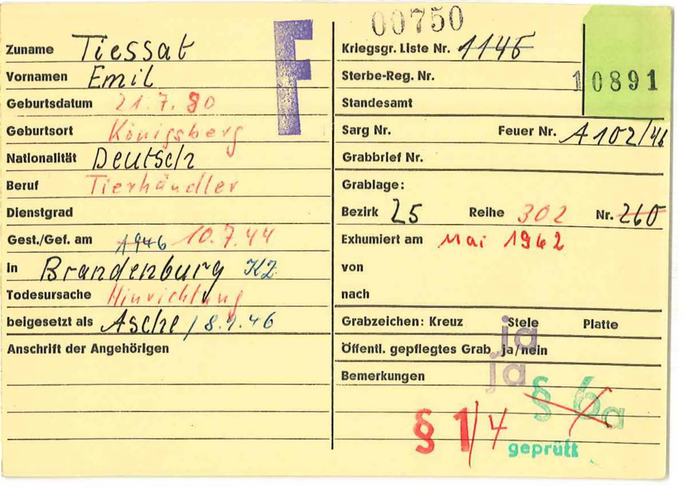 00750
F
Zuname Tiessat
Vornamen Emil
Geburtsdatum 21.7.80
Geburtsort Königsberg
Nationalität Deutsch
Beruf Tierhändler
Dienstgrad
Gest./Gef. am 1946 10.7.44
in Brandenburg KZ
Todesursache Hinrichtung
beigesetzt als Asche / 8.1.46
Anschrift der Angehörigen
Kriegsgr. Liste Nr. 1145
Sterbe-Reg. Nr. 10891
Standesamt
Sarg Nr. Feuer Nr. A 102/46
Grabbrief Nr.
Grablage:
Bezirk 25 Reihe 302 Nr. 260
Exhumiert am Mai 1962
von
nach
Grabzeichen: Kreuz Stele Platte
ja
Öffentl. gepflegtes Grab ja/nein
ja
Bemerkungen
§ 6a
§ 1/4
geprüft